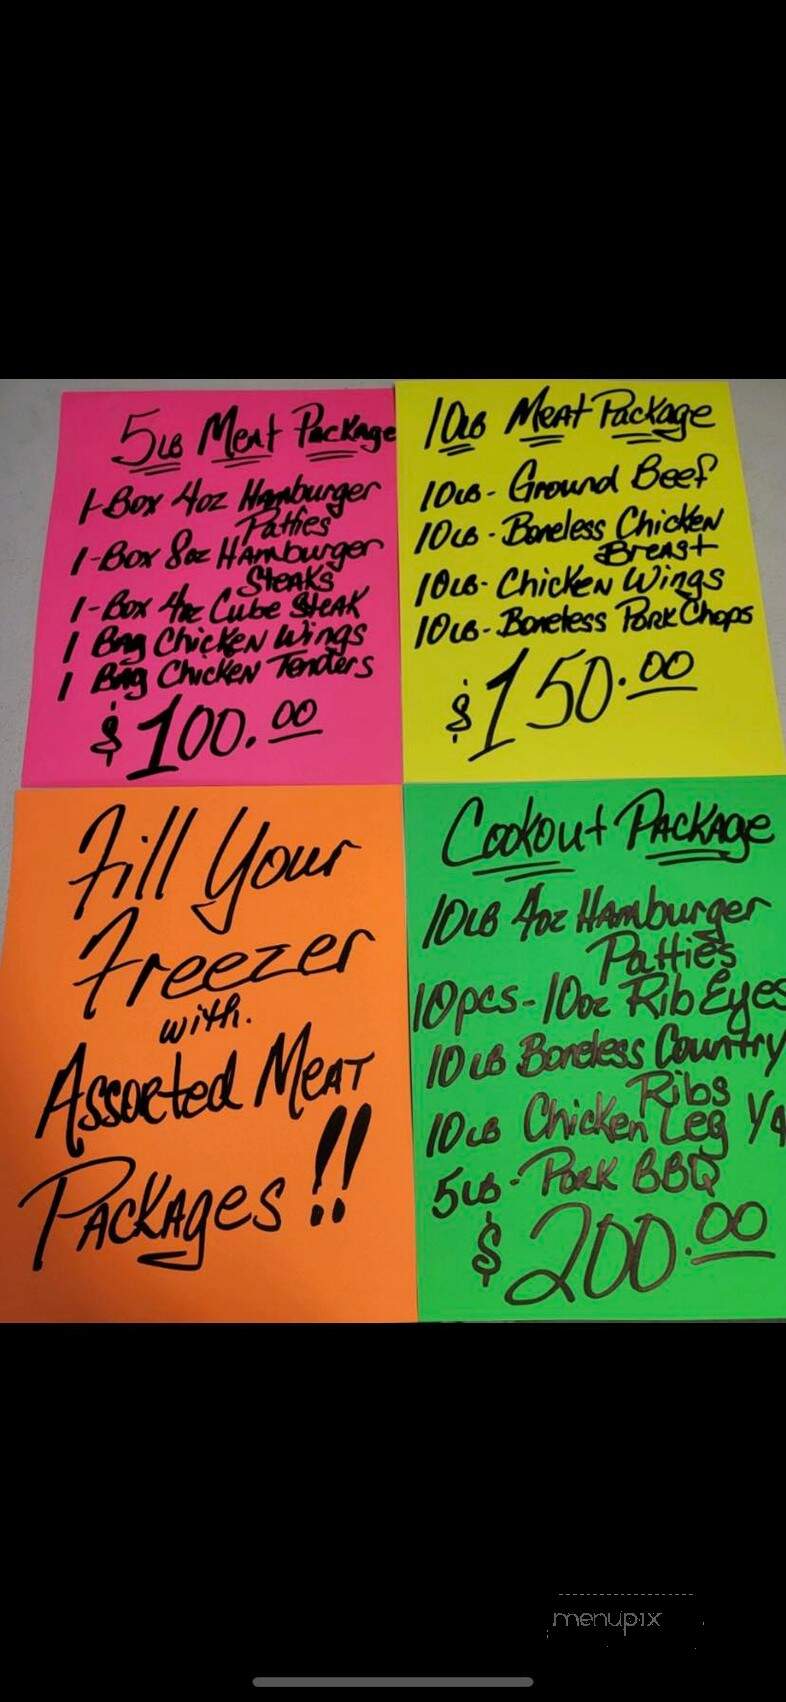 5LB Meat Package
1-Box 4oz Hamburger
Patties
1-Box 8oz Hamburger
Steaks
1-Box 4oz Cube Steak
1 Bag Chicken Wings
1 Bag Chicken Tenders
$100.00
10LB Meat Package
10LB- Ground Beef
10LB- Boneless Chicken
Breast
10LB- Chicken Wings
10LB- Boneless Pork Chops
$150.00
Fill Your
Freezer
with.
Assorted Meat
Packages!!
Cookout Package
10LB 4oz Hamburger
Patties
10pcs- 10oz Rib Eyes
10LB Boneless Country
Ribs
10LB Chicken Leg 1/4
5LB- Pork BBQ
$200.00
menupix